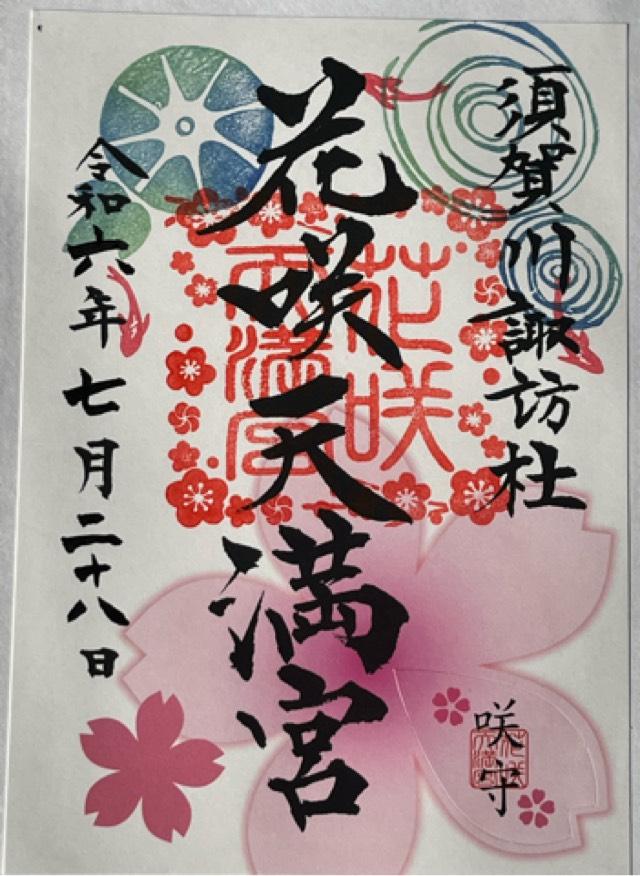 須賀川諏訪杜
花咲天満宮
花咲
天満宮
令和六年七月二十八日
咲守
花咲
天満宮